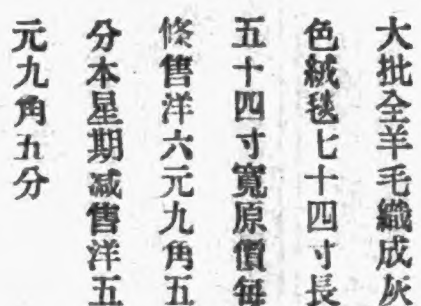 大批全羊毛織成灰
色絨毯七十四寸長
五十四寸寬原價每
條售洋六元九角五
分本星期减售洋五
元九角五分